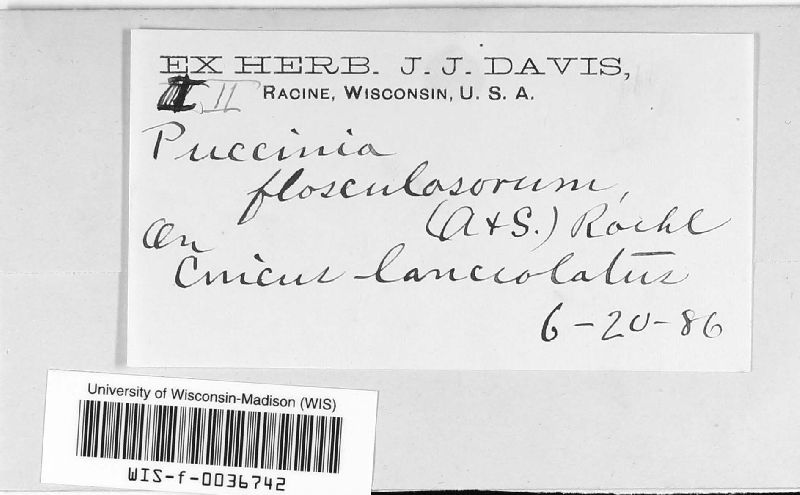 EX HERB. J. J. DAVIS,
II RACINE, WISCONSIN, U. S. A.
Puccinia
flosculosorum,
(A & S.) Roehl
On
Cnicus lanceolatus
6-20-86
University of Wisconsin-Madison (WIS)
WIS-f-0036742